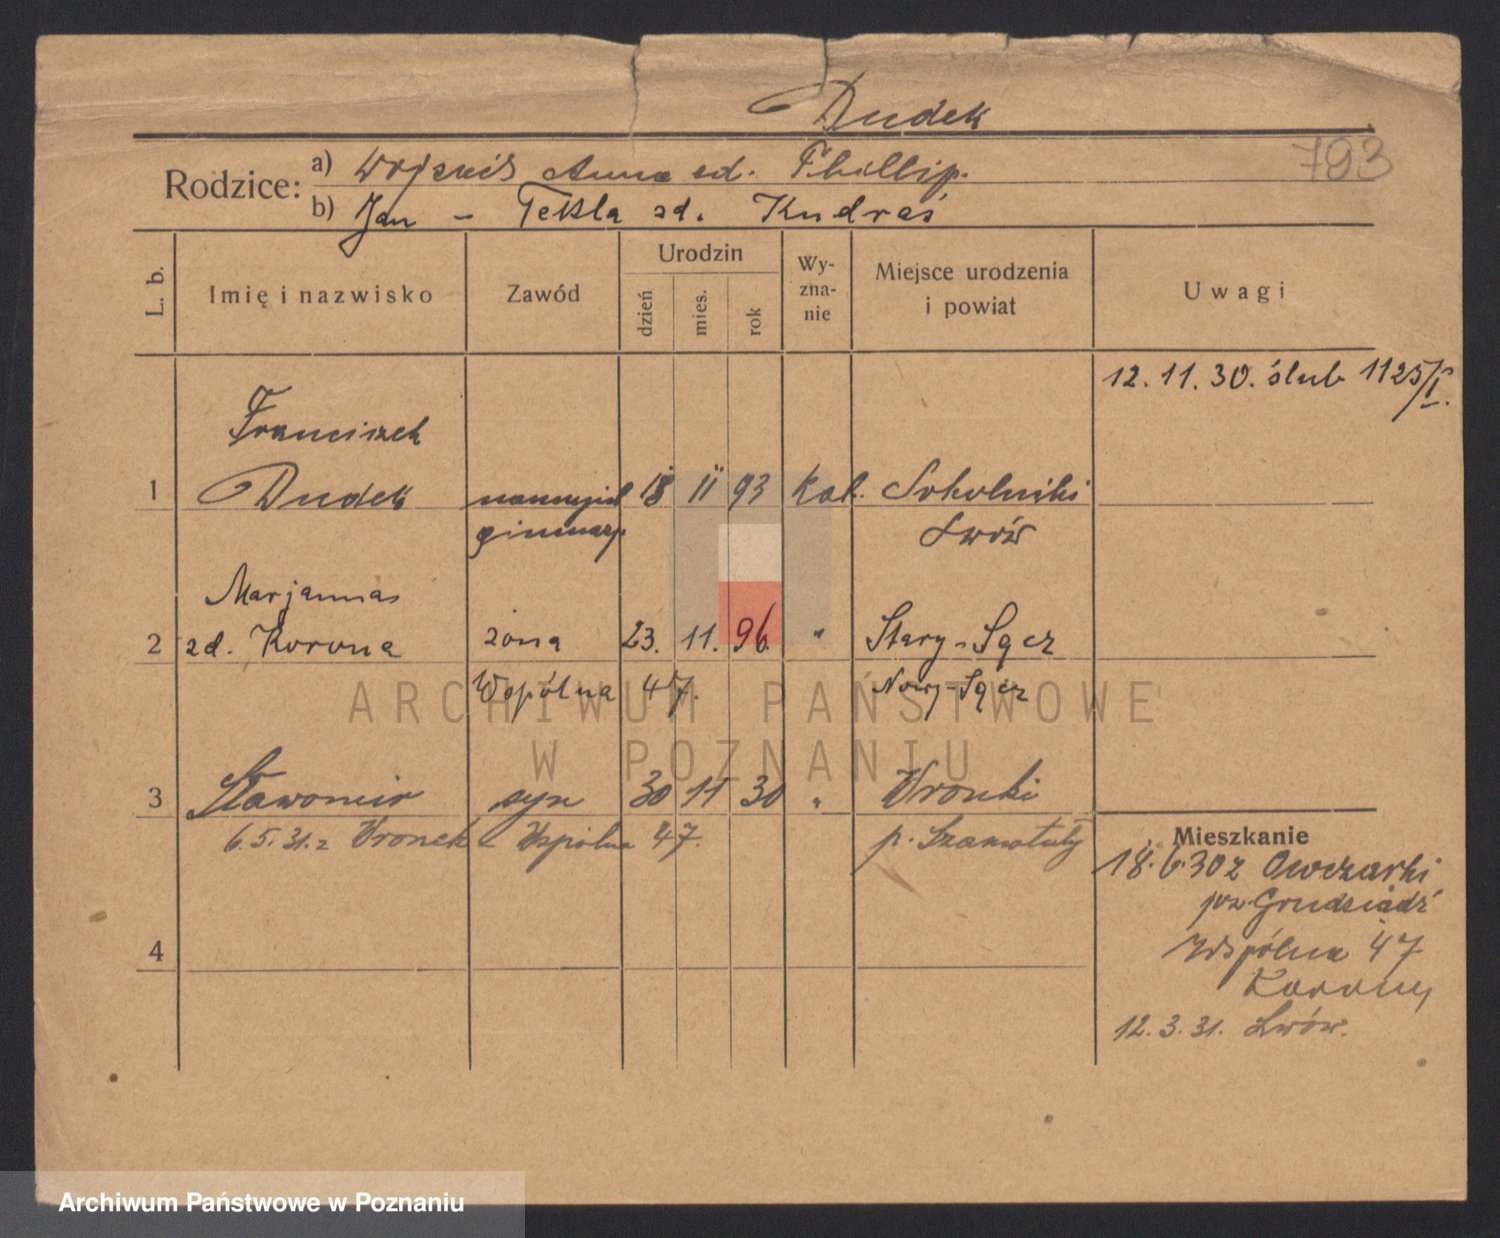 Dudek
793
Rodzice: a) Wojciech Anna zd. Phillip.
b) Jan - Tekla zd. Kudraś
L. b. Imię i nazwisko Zawód Urodzin dzień mies. rok Wy-zna-nie Miejsce urodzenia i powiat Uwagi
12. 11. 30. ślub 1125/I.
Franciszek
1 Dudek nauczyciel 18 11 93 kat. Sokolniki
gimnazj. Lwów
Marjanna
2 zd. Korona żona 23. 11. 96. " Stary-Sącz
Wspólna 47. Nowy-Sącz
3 Sławomir syn 30 11 30 " Wronki
6. 5. 31. z Wronek Wspólna 47. p. Szamotuły
Mieszkanie
18.6.30 z Owczarki
pow. Grudziądz
4 Wspólna 47
Korony
12. 3. 31. Lwów.
ARCHIWUM PAŃSTWOWE
W POZNANIU
Archiwum Państwowe w Poznaniu